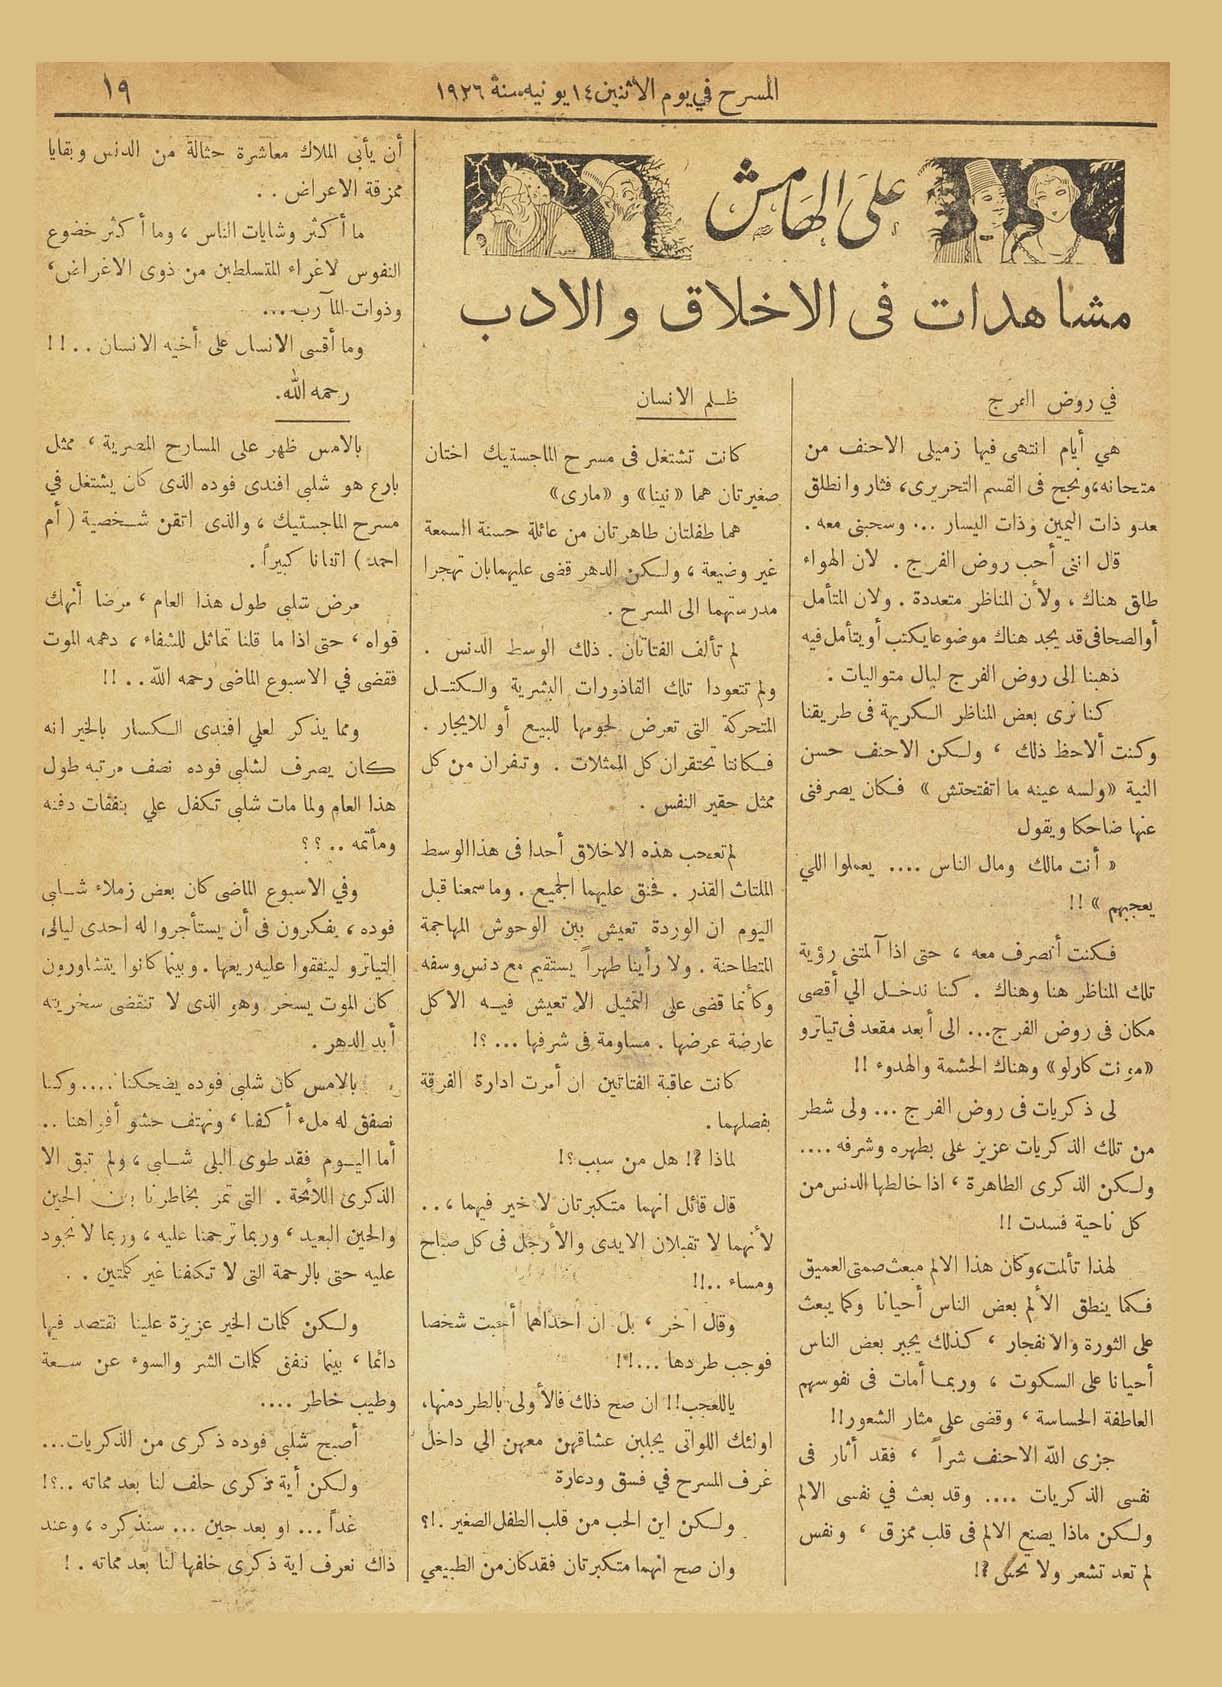 المسرح في يوم الاثنين ١٤ يونيه سنة ١٩٢٦
١٩
على الهامش
مشاهدات فى الاخلاق والادب
في روض الفرج
هي أيام انتهى فيها زميلى الاحنف من
متحانه، ونجح فى القسم التحريرى، فثار وانطلق
عدو ذات اليمين وذات اليسار ... وسحبنى معه .
قال اننى أحب روض الفرج . لان الهواء
طلق هناك ، ولأن المناظر متعددة . ولان المتأمل
أو الصحافى قد يجد هناك موضوعا يكتب أو يتأمل فيه
ذهبنا إلى روض الفرج ليال متواليات .
كنا نرى بعض المناظر الكريهة فى طريقنا
وكنت ألاحظ ذلك ، ولكن الاحنف حسن
النية «ولسه عينه ما اتفتحتش » فكان يصرفنى
عنها ضاحكا ويقول
« أنت مالك ومال الناس .... يعملوا اللي
يعجبهم » !!
فكنت أنصرف معه ، حتى اذا آلمتنى رؤية
تلك المناظر هنا وهناك . كنا ندخل الي أقصى
مكان فى روض الفرج ... الى أبعد مقعد فى تياترو
«مونت كارلو» وهناك الحشمة والهدوء !!
لى ذكريات فى روض الفرج ... ولى شطر
من تلك الذكريات عزيز على بطهره وشرفه ....
ولكن الذكرى الطاهرة ، اذا خالطها الدنس من
كل ناحية فسدت !!
لهذا تألمت، وكان هذا الالم مبعث صمتى العميق
فكما ينطق الألم بعض الناس أحيانا وكما يبعث
على الثورة والانفجار ، كذلك يجبر بعض الناس
أحيانا على السكوت ، وربما أمات فى نفوسهم
العاطفة الحساسة ، وقضى على مثار الشعور!!
جزى الله الاحنف شراً ، فقد أثار فى
نفسى الذكريات .... وقد بعث في نفسى الالم
ولكن ماذا يصنع الالم فى قلب ممزق ، ونفس
لم تعد تشعر ولا تحس ؟!
ظلم الانسان
كانت تشتغل فى مسرح الماجستيك اختان
صغيرتان هما «نينا» و «مارى»
هما طفلتان طاهرتان من عائلة حسنة السمعة
غير وضيعة ، ولكن الدهر قضى عليهما بان تهجرا
مدرستهما الى المسرح .
لم تألف الفتاتان . ذلك الوسط الدنس .
ولم تتعودا تلك القاذورات البشرية والكتل
المتحركة التى تعرض لحومها للبيع أو للايجار .
فكانتا تحتقران كل الممثلات . وتنفران من كل
ممثل حقير النفس .
لم تعجب هذه الاخلاق أحدا فى هذا الوسط
الملتاث القذر . فحنق عليهما الجميع . وما سمعنا قبل
اليوم ان الوردة تعيش بين الوحوش المهاجمة
المتطاحنة . ولا رأينا طهراً يستقيم مع دنس وسفه
وكأنما قضى على التمثيل الا تعيش فيه الا كل
عارضة عرضها . مساومة فى شرفها ... ؟!
كانت عاقبة الفتاتين ان أمرت ادارة الفرقة
بفصلهما .
لماذا ؟! هل من سبب ؟!
قال قائل انهما متكبرتان لا خير فيهما ، ..
لأنهما لا تقبلان الايدى والأرجل فى كل صباح
ومساء ..!!
وقال آخر ، بل ان احداهما أحبت شخصا
فوجب طردها ...!!
ياللعجب!! ان صح ذلك فالأولى بالطرد منها،
اولئك اللواتى يجلبن عشاقهن معهن الي داخل
غرف المسرح في فسق ودعارة
ولكن اين الحب من قلب الطفل الصغير .!؟
وان صح انهما متكبرتان فقد كان من الطبيعي
أن يأبى الملاك معاشرة حثالة من الدنس وبقايا
ممزقة الاعراض . .
ما أكثر وشايات الناس ، وما أكثر خضوع
النفوس لاغراء المتسلطين من ذوى الاغراض،
وذوات المآرب ...
وما أقسى الانسان على أخيه الانسان . . !!
رحمه الله.
بالامس ظهر على المسارح المصرية ، ممثل
بارع هو شلبى افندى فوده الذى كان يشتغل في
مسرح الماجستيك ، والذى اتقن شخصية ( أم
احمد ) اتقانا كبيراً .
مرض شلبى طول هذا العام ، مرضا أنهك
قواه ، حتى اذا ما قلنا تماثل للشفاء ، دهمه الموت
فقضى في الاسبوع الماضى رحمه الله . . !!
ومما يذكر لعلي افندى الكسار بالخير انه
كان يصرف لشلبى فوده نصف مرتبه طول
هذا العام ولما مات شلبى تكفل علي بنفقات دفنه
ومأتمه .. ؟؟
وفي الاسبوع الماضى كان بعض زملاء شلبى
فوده ، يفكرون فى أن يستأجروا له احدى ليالى
التياترو لينفقوا عليه ريعها . وبينما كانوا يتشاورون
كان الموت يسخر وهو الذى لا تنقضى سخريته
أبد الدهر .
بالامس كان شلبى فوده يضحكنا .... وكنا
نصفق له ملء أكفنا ، ونهتف حشو أفواهنا ..
أما اليوم فقد طوى البلى شلبى ، ولم تبق الا
الذكرى اللائحة . التى تمر بخاطرنا بين الحين
والحين البعيد ، وربما ترحمنا عليه ، وربما لا نجود
عليه حتى بالرحمة التى لا تكلفنا غير كلمتين . .
ولكن كلمات الخير عزيزة علينا نقتصد فيها
دائما ، بينما ننفق كلمات الشر والسوء عن سعة
وطيب خاطر ....
أصبح شلبى فوده ذكرى من الذكريات ...
ولكن أية ذكرى خلف لنا بعد مماته ..؟!
غداً ... او بعد حين ... سنذكره ، وعند
ذاك نعرف اية ذكرى خلفها لنا بعد مماته . !